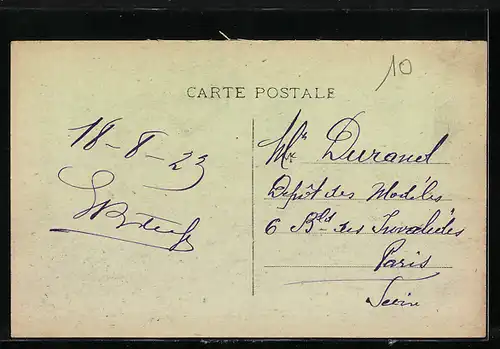 10
CARTE POSTALE
18-8-23
Mr Durand
Dépôt des Modèles
6 Bld des Invalides
Paris
Seine